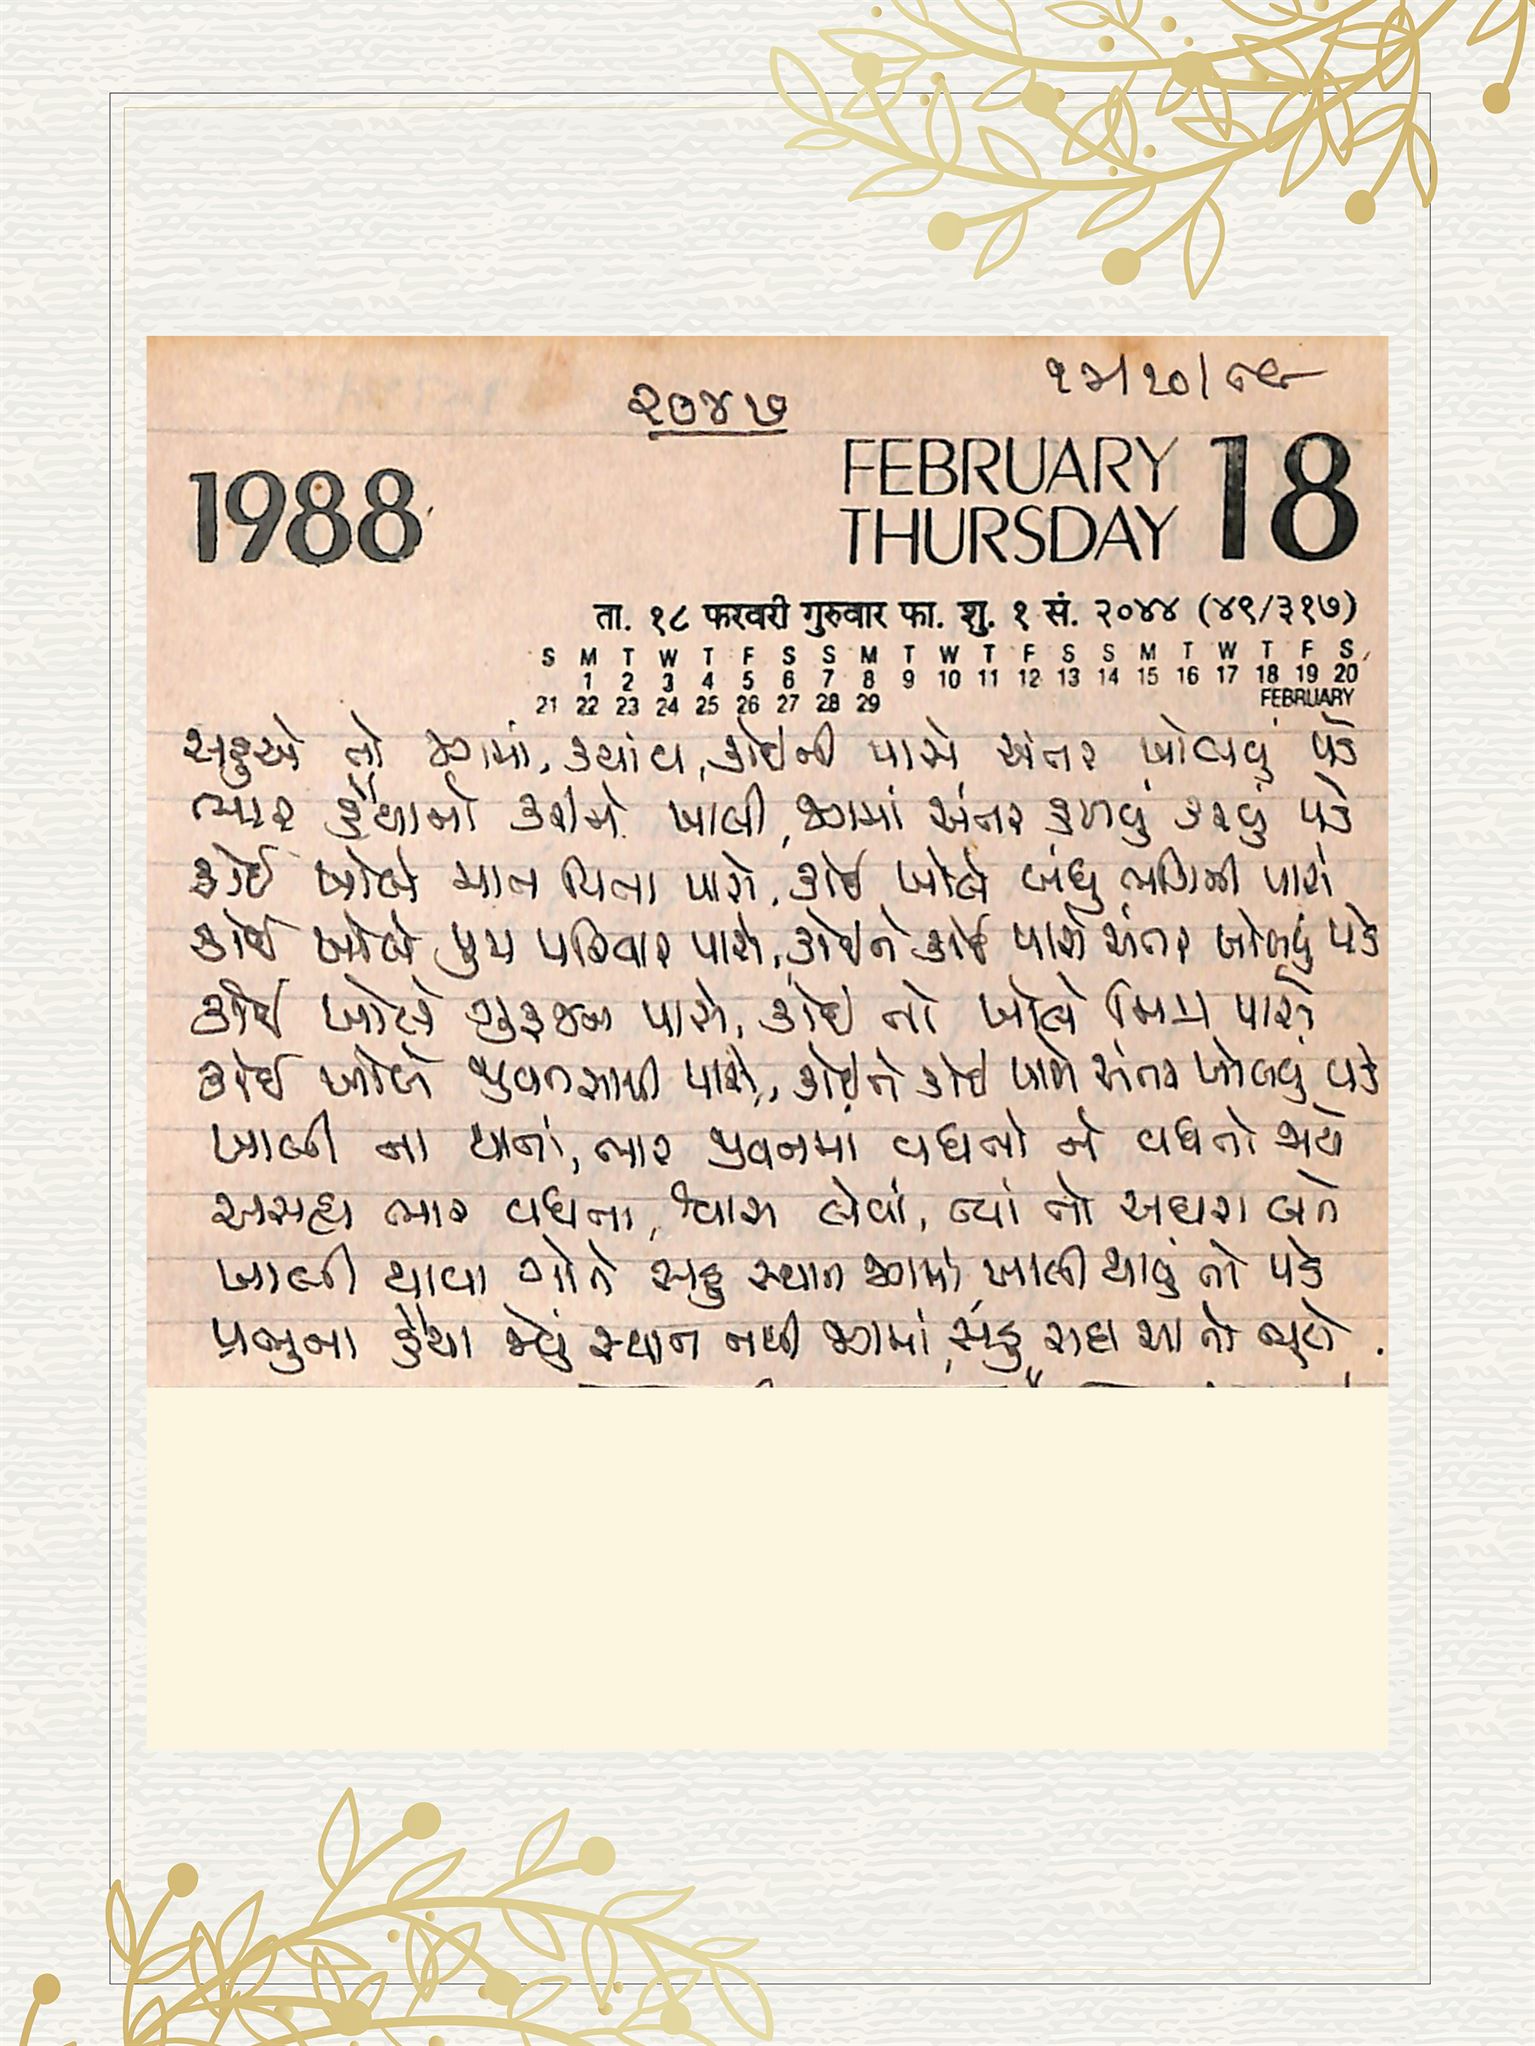 ૧૩/૧૦/૮૯
૨૦૪૭
1988
FEBRUARY 18
THURSDAY
ता. १८ फरवरी गुरुवार फा. शु. १ सं. २०४४ (४९/३१७)
S M T W T F S S M T W T F S S M T W T F S
1 2 3 4 5 6 7 8 9 10 11 12 13 14 15 16 17 18 19 20
21 22 23 24 25 26 27 28 29 FEBRUARY
સહુએ તો જગમાં, ક્યાંય, કોઈની પાસે અંતર ખોલવું પડે
ભાર હૈયાનો કરીને ખાલી, જગમાં અંતર હળવું કરવું પડે
કોઈ ખોલે માત પિતા પાસે, કોઈ ખોલે બંધુ ભગિની પાસે
કોઈ ખોલે પુત્ર પરિવાર પાસે, કોઈને કોઈ પાસે અંતર ખોલવું પડે
કોઈ ખોલે ગુરુજન પાસે, કોઈ તો ખોલે મિત્ર પાસે
કોઈ ખોલે જીવનસાથી પાસે, કોઈને કોઈ પાસે અંતર ખોલવું પડે
ખાલી ના થાતાં, ભાર જીવનમાં વધતો ને વધતો જાયે
અસહ્ય ભાર વધતા, શ્વાસ લેવાં, ત્યાં તો અઘરા બને
ખાલી થાવા ગોતે સહુ સ્થાન જગમાં, ખાલી થાવું તો પડે
પ્રભુના હૈયા જેવું સ્થાન નથી જગમાં, સહુ સદા આ તો ભૂલે.